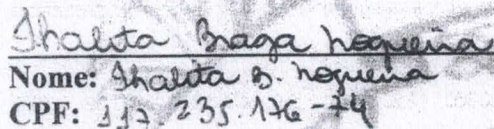 Thalita Braga Nogueira
Nome: Thalita B. Nogueira
CPF: 117.235.176-74